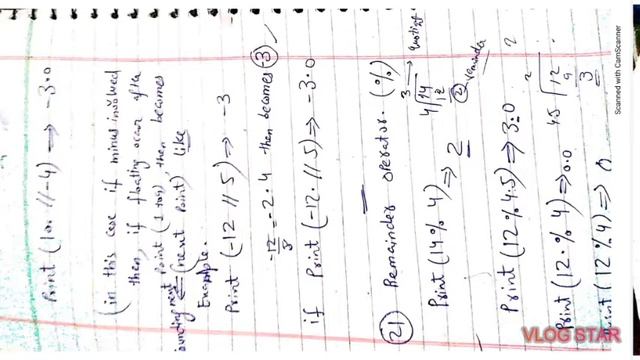 Print (10. // -4) → -3.0
(in this case if minus involved
then, if floating occur after
Point (1 to 9), then becomes
ounting next (next Point) like
Example.
Print (-12 // 5) ⇒ -3
-12/5 = -2.4 then becomes (-3)
if Print (-12. // 5) ⇒ -3.0
21) Remainder operator. (%)
3 → quotient
4 14
12
2 reminder
Print (14 % 4) ⇒ 2
Print (12 % 4.5) ⇒ 3.0
2
4.5 12
9
3
Print (12. % 4) ⇒ 0.0
Print (12 % 4) ⇒ 0
Scanned with CamScanner
VLOG STAR